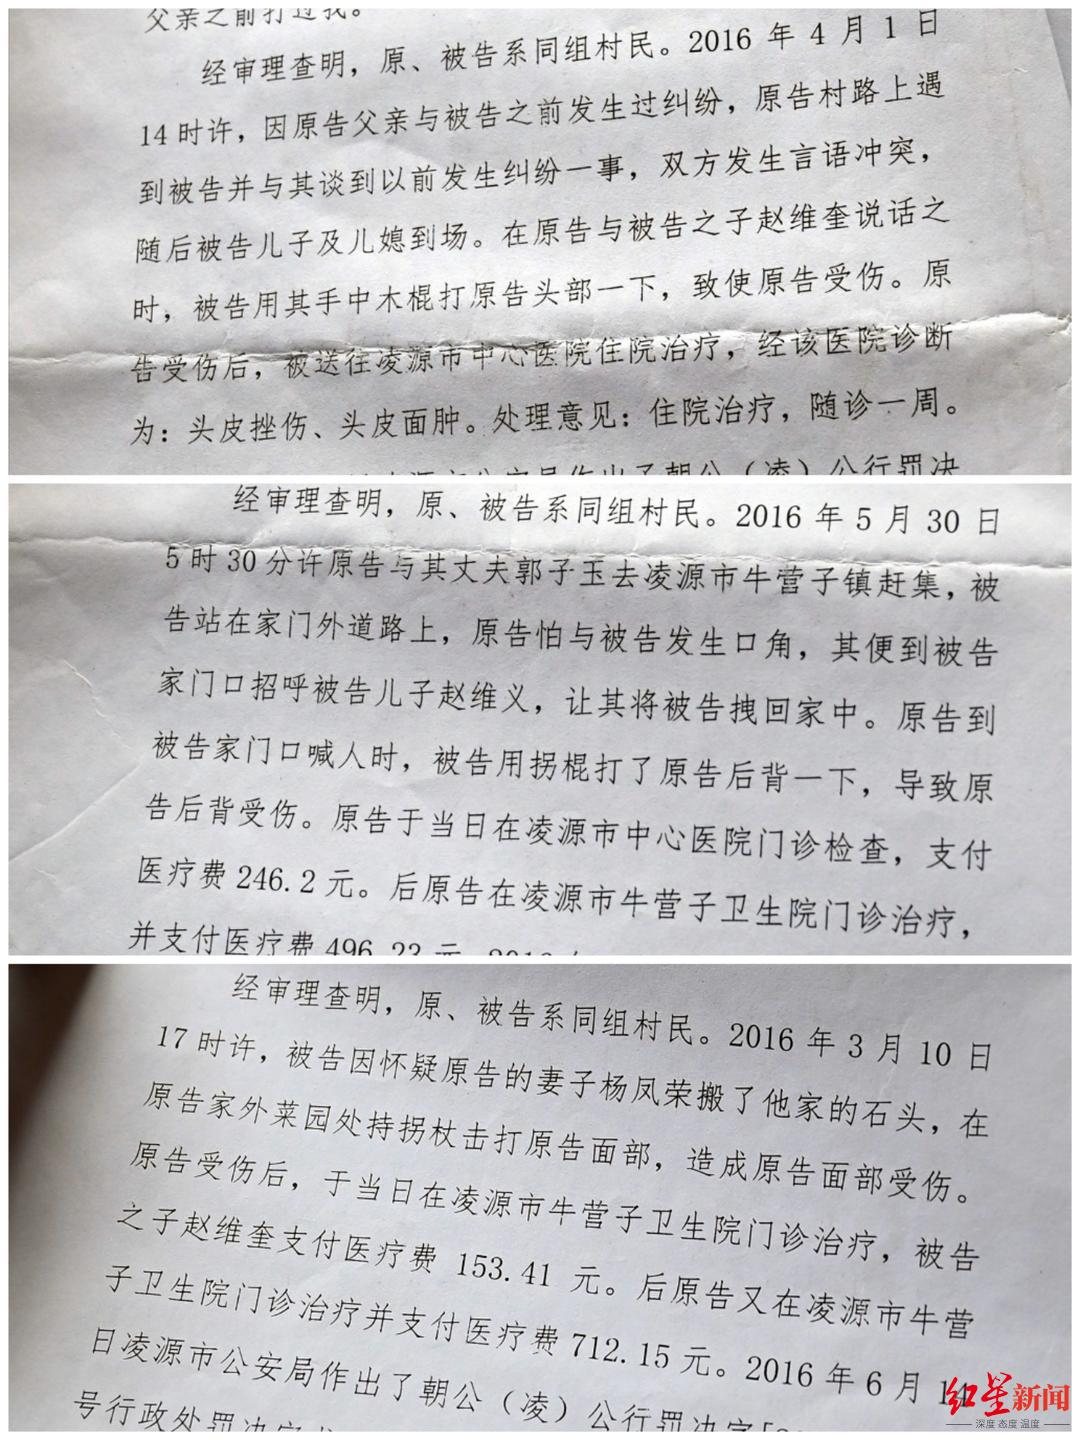 父亲之前打过我。
经审理查明，原、被告系同组村民。2016 年 4 月 1 日
14 时许，因原告父亲与被告之前发生过纠纷，原告村路上遇
到被告并与其谈到以前发生纠纷一事，双方发生言语冲突，
随后被告儿子及儿媳到场。在原告与被告之子赵维奎说话之
时，被告用其手中木棍打原告头部一下，致使原告受伤。原
告受伤后，被送往凌源市中心医院住院治疗，经该医院诊断
为：头皮挫伤、头皮面肿。处理意见：住院治疗，随诊一周。
凌源市公安局作出了朝公（凌）公行罚决
经审理查明，原、被告系同组村民。2016 年 5 月 30 日
5 时 30 分许原告与其丈夫郭子玉去凌源市牛营子镇赶集，被
告站在家门外道路上，原告怕与被告发生口角，其便到被告
家门口招呼被告儿子赵维义，让其将被告拽回家中。原告到
被告家门口喊人时，被告用拐棍打了原告后背一下，导致原
告后背受伤。原告于当日在凌源市中心医院门诊检查，支付
医疗费 246.2 元。后原告在凌源市牛营子卫生院门诊治疗，
并支付医疗费 496.23 元。2016 年
经审理查明，原、被告系同组村民。2016 年 3 月 10 日
17 时许，被告因怀疑原告的妻子杨凤荣搬了他家的石头，在
原告家外菜园处持拐杖击打原告面部，造成原告面部受伤。
原告受伤后，于当日在凌源市牛营子卫生院门诊治疗，被告
之子赵维奎支付医疗费 153.41 元。后原告又在凌源市牛营
子卫生院门诊治疗并支付医疗费 712.15 元。2016 年 6 月 14
日凌源市公安局作出了朝公（凌）公行罚决字
号行政处罚决定
红星新闻
深度 态度 温度